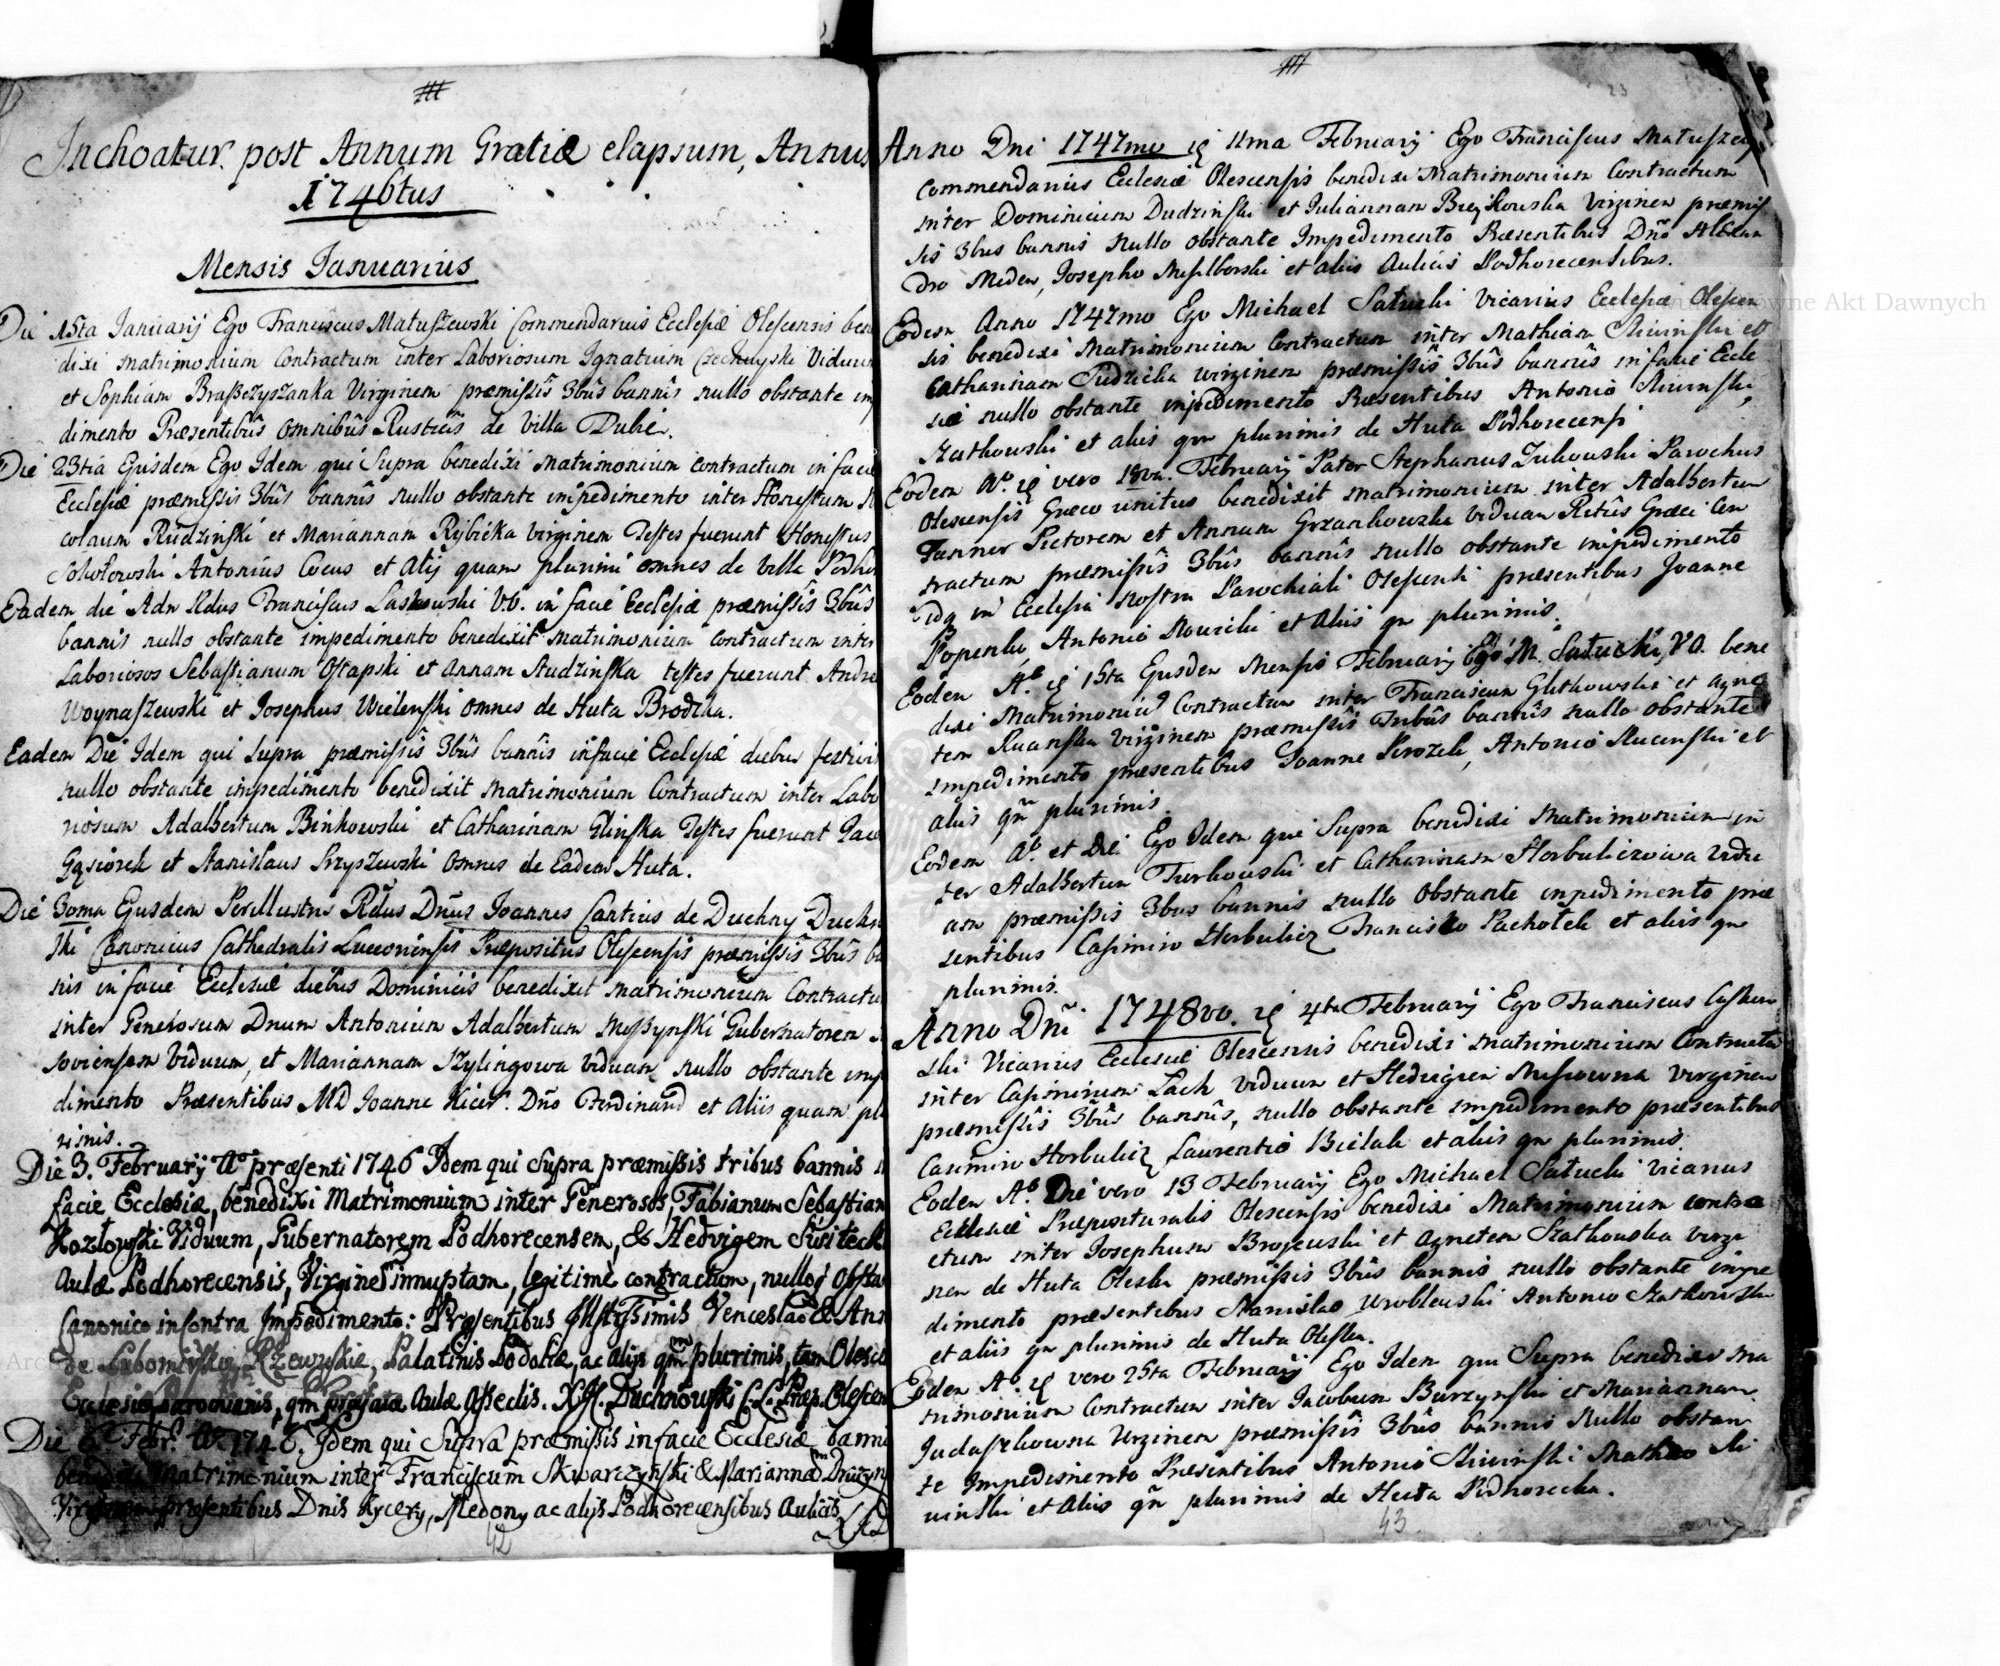 Inchoatur post Annum Gratiæ elapsum, Annus
1746tus
Mensis Januarius
Die 15ta Januarij Ego Franciscus Matuszewski Commendarius Ecclesiæ Olescensis bene
dixi Matrimonium Contractum inter Laboriosum Ignatium Viduum
et Sophiam Virginem præmissis 3bus bannis nullo obstante im
dimento Præsentibus omnibus Rusticis de Villa Dubie.
Die 23tia Ejusdem Ego Idem qui Supra benedixi Matrimonium contractum in facie
Ecclesiæ præmissis 3bus bannis nullo obstante impedimento inter Honestum
colaum Rudzinski et Mariannam Rybicka Virginem Testes fuerunt Honestus
Sokołowski Antonius Cocus et Alij quam plurimi omnes de Villa Podho
Eadem die Adm Rdus Franciscus Laskowski V.O. in facie Ecclesiæ præmissis 3bus
bannis nullo obstante impedimento benedixit Matrimonium Contractum inter
Laboriosos Sebastianum Ostapski et Annam Studzinska testes fuerunt Andre
Woynaszewski et Josephus Wielenski omnes de Huta Brodzka.
Eadem Die Idem qui supra præmissis 3bus bannis in facie Ecclesiæ diebus festivis
nullo obstante impedimento benedixit Matrimonium Contractum inter Labo
riosum Adalbertum Binkowski et Catharinam Glinska Testes fuerunt Jaco
Gąsiorek et Stanislaus Szyszewski omnes de Eadem Huta.
Die 30ma Ejusdem Perillustris Rdus Dnus Joannes Cantius de Duchny Duchn
ski Canonicus Cathedralis Luceoriensis Præpositus Olescensis præmissis 3bus ba
nis in facie Ecclesiæ diebus Dominicis benedixit Matrimonium Contractu
inter Generosum Dnum Antonium Adalbertum Gubernatorem
soviensem Viduum, et Mariannam Szylingowa viduam nullo obstante impe
dimento Præsentibus MD Joanne Dno Ferdinand et Aliis quam plu
rimis.
Die 3. February Ao præsenti 1746 Idem qui supra præmissis tribus bannis in
facie Ecclesiæ, benedixi Matrimonium inter Generosos, Fabianum Sebastian
Kozłowski Viduum, Gubernatorem Podhorecensem, & Hedvigem
Aulæ Podhorecensis, Virginem innuptam, legitime contractum, nulloq obsta
Canonico in contra Impedimento: Præsentibus Venceslao & Ann
de Lubomirskie Rzewuskie, Palatinis Podoliæ, ac alijs qm plurimis, tam Olesce
Ecclesiæ Parochianis, qm præfatæ Aulæ Assedis. Duchnowski C.L. Præp. Olescen
Die 6 Febr. Ao 1746. Idem qui Supra præmissis in facie Ecclesiæ banni
benedixi Matrimonium inter Franciscum Skwarczynski & Mariannam Druzyn
Virginem præsentibus Dnis Rycery, Medony ac alijs Podhorecensibus Aulicis
42
23
Anno Dni 1747mo 11ma February Ego Franciscus Matuszew
Commendarius Ecclesiæ Olescensis benedixi Matrimonium Contractum
inter Dominicum Dudzinski et Juliannam Virginem præmis
sis 3bus bannis nullo obstante Impedimento Præsentibus Dno Alexan
dro Meden, Josepho et aliis Aulicis Podhorecensibus.
Eodem Anno 1747mo Ego Michael Satucki Vicarius Ecclesiæ Olescen
sis benedixi Matrimonium Contractum inter Mathiam et
Catharinam Sudzicka virginem præmissis 3bus bannis in facie Eccle
siæ nullo obstante impedimento Præsentibus Antonio
Szatkowski et aliis qm plurimis de Huta Podhorecensi
Eodem Ao vero 18va February Pater Stephanus Zukowski Parochus
Olescensis Græco unitus benedixit Matrimonium inter Adalbertum
Tanner Pictorem et Annam Viduam Ritus Græci Con
tractum præmissis 3bus bannis nullo obstante impedimento
idq in Ecclesia nostra Parochiali Olescensi præsentibus Joanne
Antonio et Aliis qm plurimis.
Eodem Ao 15ta Ejusdem Mensis February Ego M. Satucki, V.O. bene
dixi Matrimoniu Contractum inter Franciscum Glutkowski et Agne
tem Virginem præmissis Tribus bannis nullo obstante
impedimento præsentibus Joanne Antonio et
aliis qm plurimis.
Eodem Ao et Die Ego Idem qui Supra benedixi Matrimonium in
ter Adalbertum Turkowski et Catharinam Horbulewiczowa Vidu
am præmissis 3bus bannis nullo obstante impedimento præ
sentibus Casimiro Horbulicz Francisco Pachołek et aliis qm
plurimis.
Anno Dni 1748vo. 4ta February Ego Franciscus
ski Vicarius Ecclesiæ Olescensis benedixi Matrimonium Contractu
inter Casimirum Lach viduum et Hedvigem virginem
præmissis 3bus bannis, nullo obstante impedimento præsentibus
Casimiro Horbulicz Laurentio Bielak et aliis qm plurimis
Eodem Ao Die vero 13 February Ego Michael Satucki Vicarius
Ecclesiæ Præposituralis Olescensis benedixi Matrimonium contra
ctum inter Josephum et Agnetem Szatkowska virgi
nem de Huta Oleska præmissis 3bus bannis nullo obstante impe
dimento præsentibus Stanislao Wroblewski Antonio Szatkowski
et aliis qm plurimis de Huta Oleska.
Eodem Ao vero 25ta February Ego Idem qui Supra benedixi Ma
trimonium Contractum inter Jacobum Burzynski et Mariannam
Judaszkowna Virginem præmissis 3bus bannis Nullo obstan
te Impedimento Præsentibus Antonio Sliwinski Mathæo Sli
winski et Aliis qm plurimis de Huta Podhorecka.
43